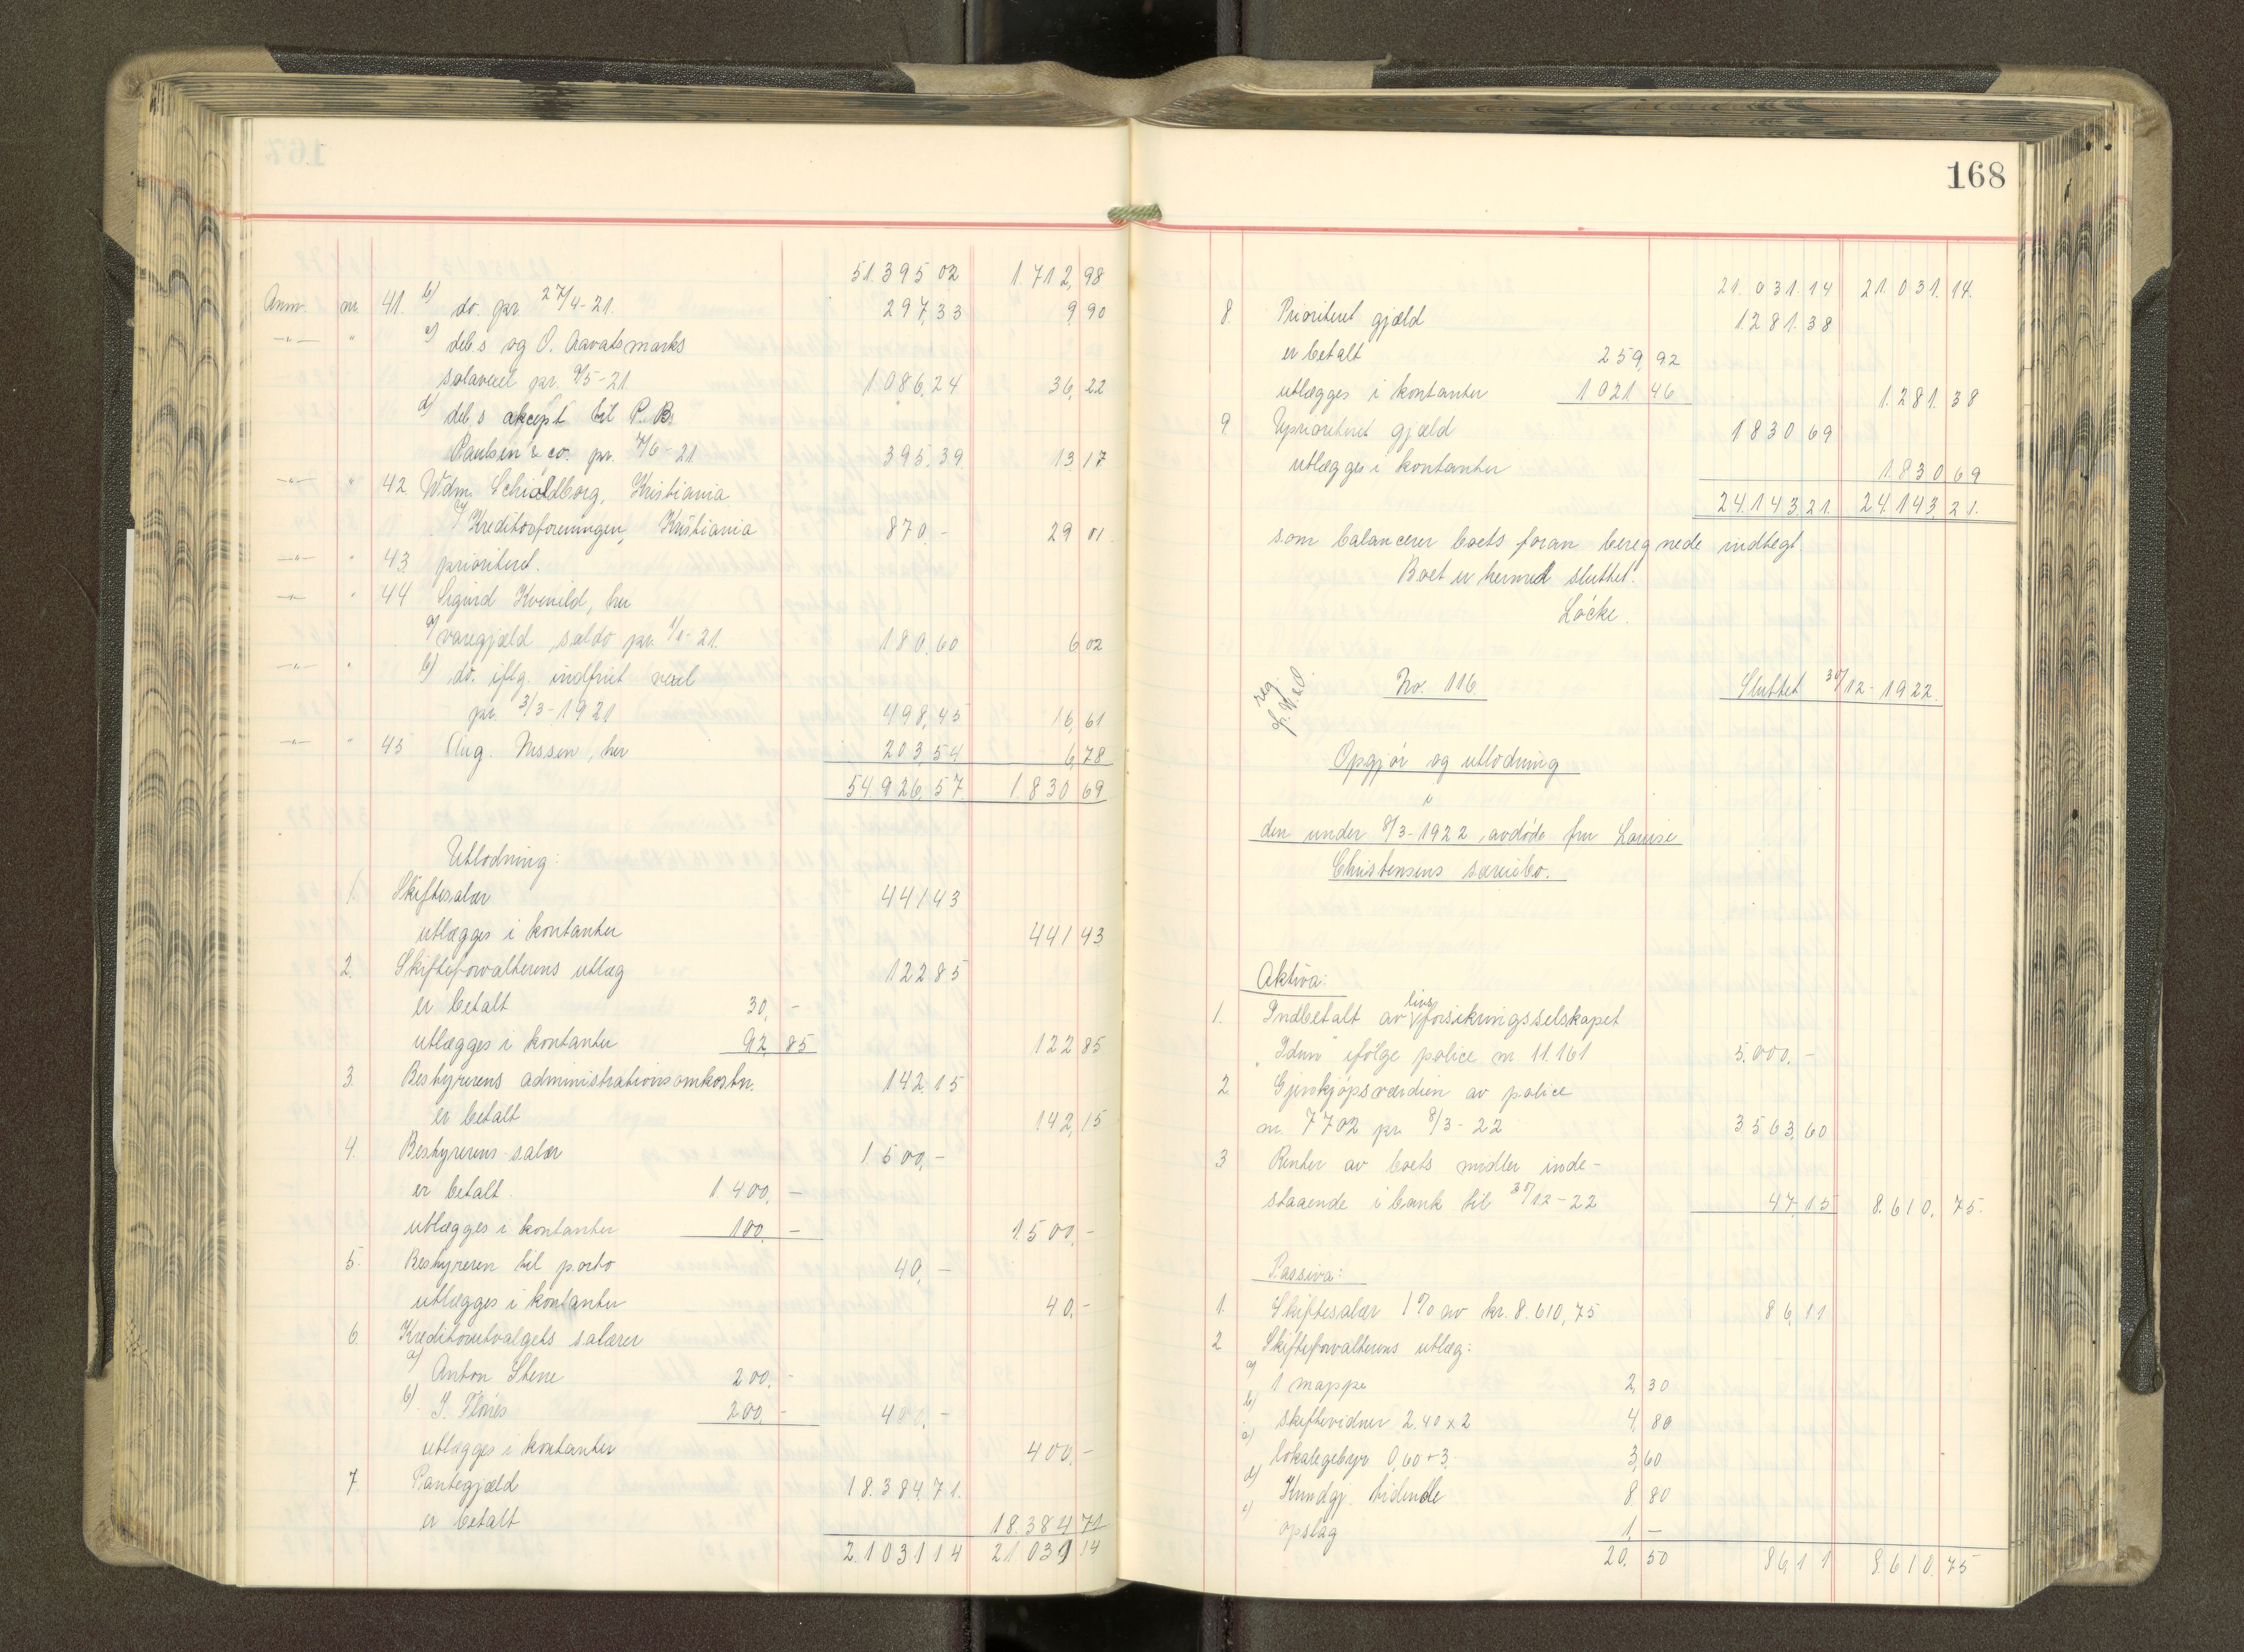 51.395 02 1.712,98
Anm. nr. 41. b) do. pr. 27/4-21. 297,33 9,90
—"— " c) deb.s og O. Aavatsmarks
solaveksel pr. 9/5-21 1.086,24 36,22
d) deb.s aksept til P. B.
Paulsen & co. pr. 7/6-21 395,39 13,17
—"— " 42 Wdm. Schioldborg, Kristiania
Kreditorforeningen, Kristiania 870,- 29 01
—"— " 43 prioritert.
—"— " 44 Sigurd Kvenild, her
a) varegjæld saldo pr. 1/1-21. 180,60 6,02
—"— " b) do. iflg. indfriet veksel
pr. 3/3-1921 498,45 16,61
—"— " 45 Aug. Nissen, her 203,54 6,78
54.926,57 1.830 69
Utlodning:
1. Skiftesalær 441 43
utlægges i kontanter 441 43
2. Skifteforvalterens utlæg 122 85
er betalt 30,-
utlægges i kontanter 92,85 122 85
3. Bestyrerens administrationsomkostn. 142,15
er betalt 142,15
4. Bestyrerens salær 1.500,-
er betalt 1.400,-
utlægges i kontanter 100,- 1.500,-
5. Bestyreren til porto 40,-
utlægges i kontanter 40,-
6. Kreditorutvalgets salærer
a) Anton Stene 200,-
b) 200,- 400,-
utlægges i kontanter 400,-
7 Pantegjæld 18.384,71.
er betalt 18.384 71
21031 14 21 031 14
168
21.031.14 21.031.14.
8. Prioritert gjæld 1.281.38
er betalt 259,92
utlægges i kontanter 1021 46 1.281.38
9 Uprioritert gjæld 1830 69
utlægges i kontanter 1.830 69
24.143.21. 24.143.21.
som balancerer boets foran beregnede indtegt
Boet er hermed sluttet.
Löcke.
reg.
No. 116. Sluttet 30/12-1922.
Opgjør og utlodning
i
den under 8/3-1922 avdøde fru Louise
Christensens særeiebo.
Aktiva:
1. Indbetalt av livsforsikringsselskapet
"Idun" ifølge police nr 11.161 5.000,-
2 Gjenkjöpsværdien av police
nr. 7702 pr. 8/3-22 3.563,60
3 Renter av boets midler inde-
staaende i bank til 31/12-22 47,15 8.610,75.
Passiva:
1. Skiftesalær 1% av kr. 8.610,75 86,11
2 Skifteforvalterens utlæg:
a) 1 mappe 2,30
b) skiftevidner 2.40 x 2 4,80
c) lokalegebyr 0,60+3. 3,60
d) Kundgj. tidende 8,80
e) opslag 1,—
20,50 86,11 8.610,75